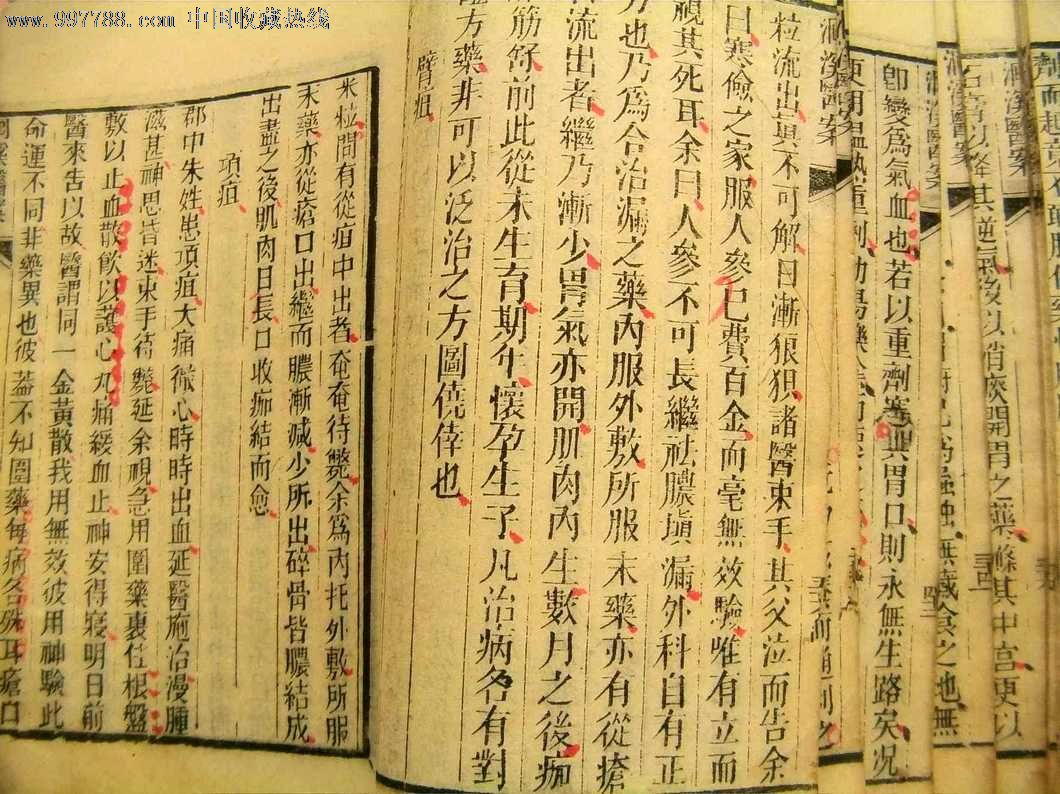 www.997788.com 中国收藏热线
劑而趨
洄溪醫案
石膏以降其逆氣後以消痰開胃之藥滌其中宮更以
洄溪醫案
無
洄溪醫案
卽變爲氣血也若以重劑塞其胃口則永無生路矣況
更用溫熱重劑
洄溪醫案
粒流出與不可解日漸狼狽諸醫束手其父泣而告余
曰寒儉之家服人參已費百金而毫無效驗唯有立而
視其死耳余曰人參不可長繼祛膿塡漏外科自有正
方也乃爲合治漏之藥內服外敷所服末藥亦有從瘡
流出者繼乃漸少胃氣亦開肌肉內生數月之後痂
筋舒前此從未生育期年懷孕生子凡治病各有對
症方藥非可以泛治之方圖僥倖也
臂疽
米粒問有從疽中出者奄奄待斃余爲內托外敷所服
末藥亦從瘡口出繼而膿漸減少所出碎骨皆膿結成
出盡之後肌肉日長口收痂結而愈
項疽
郡中朱姓患項疽大痛徹心時時出血延醫施治漫腫
滋甚神思昏迷束手待斃延余視急用圍藥裹住根盤
敷以止血散飮以護心丸痛緩血止神安得寢明日前
醫來告以故醫謂同一金黃散我用無效彼用神驗此
命運不同非藥異也彼葢不知圍藥每病各殊耳瘡口